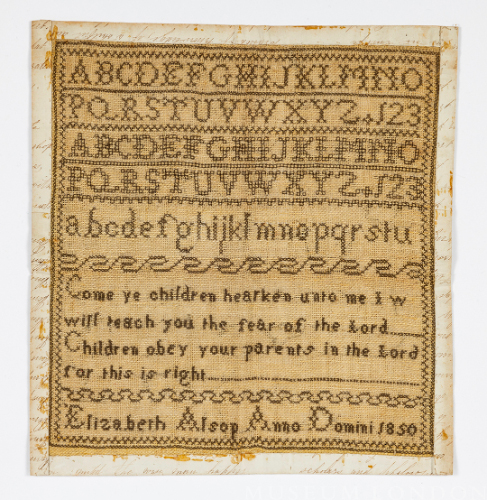 ABCDEFGHIJKLMNO
PQRSTUVWXYZ123
ABCDEFGHIJKLMNO
PQRSTUVWXYZ123
abcdefghijklmnopqrstu
Come ye children hearken unto me I w
will teach you the fear of the Lord
Children obey your parents in the Lord
for this is right
Elizabeth Alsop Anno Domini 1850